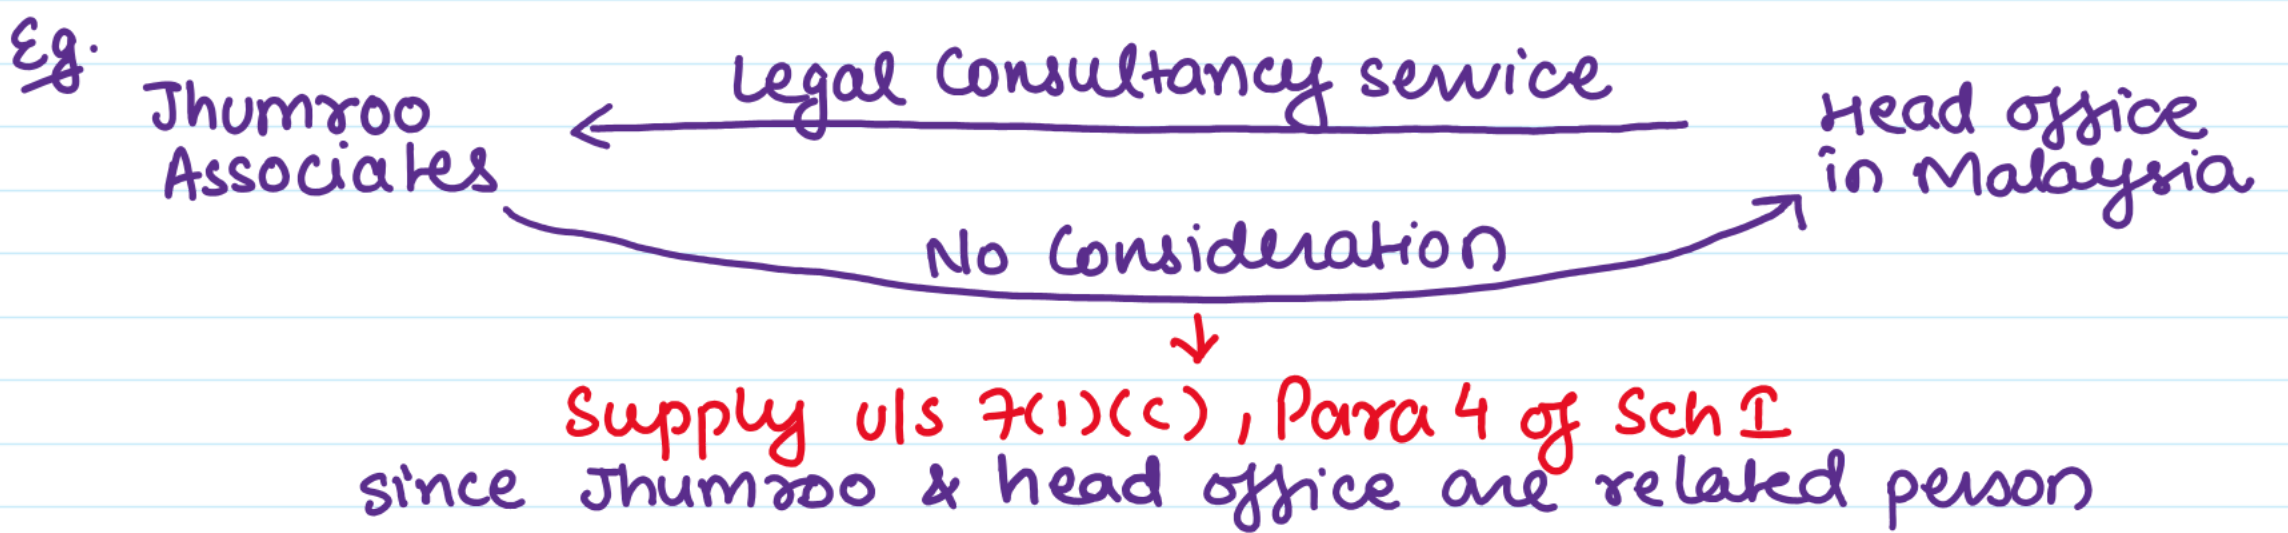 Eg.
Jhumroo
Associates
Legal Consultancy service
Head office
in Malaysia
No Consideration
Supply u/s 7(1)(c), Para 4 of Sch I
since Jhumroo & head office are related person